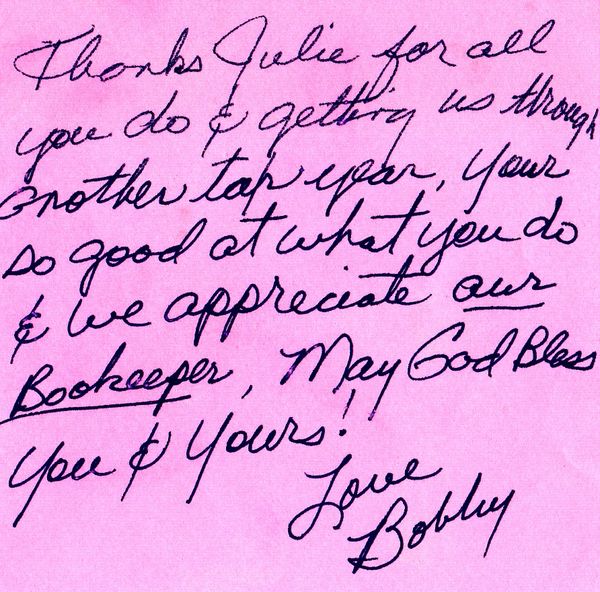 Thanks Julie for all
you do & getting us through
another tax year, your
so good at what you do
& we appreciate our
Bookeeper, May God Bless
You & Yours!
Love
Bobby